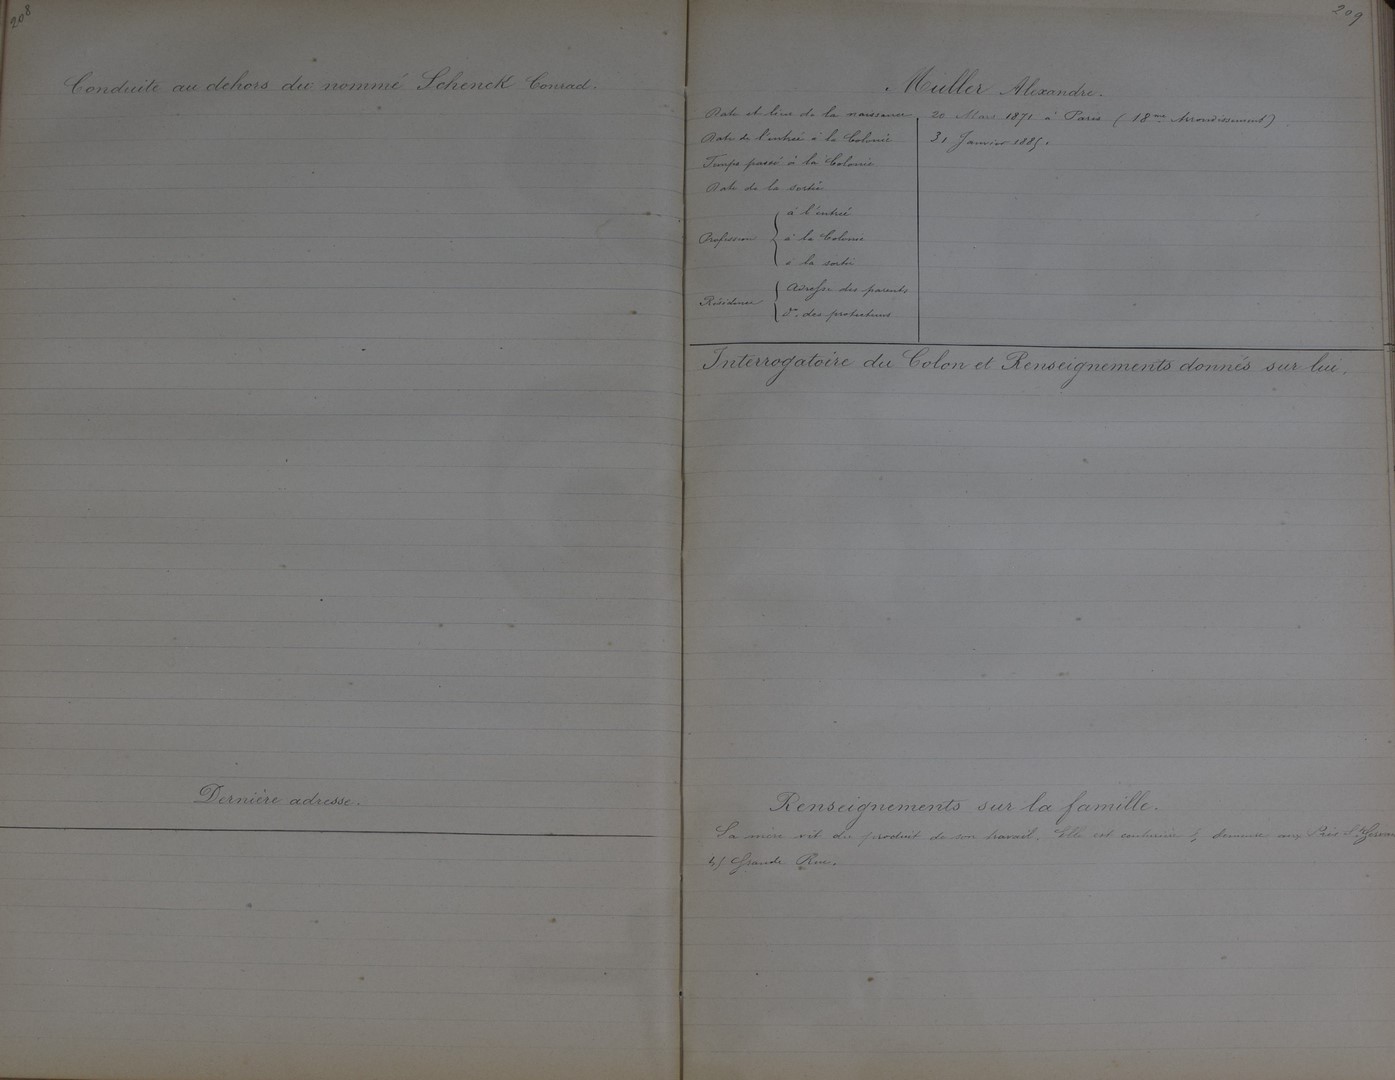 208
Conduite au dehors du nommé Schenck Conrad.
Dernière adresse.
209
Muller Alexandre.
Date et lieu de la naissance 20 Mars 1871 à Paris (18me Arrondissement)
Date de l'entrée à la Colonie 31 Janvier 1885.
Temps passé à la Colonie
Date de la sortie
Profession
à l'entrée
à la Colonie
à la sortie
Résidence
Adresse des parents
do. des protecteurs
Interrogatoire du Colon et Renseignements donnés sur lui.
Renseignements sur la famille.
Sa mère vit du produit de son travail. Elle est couturière & demeure aux Prés St Gervais
Grande Rue.